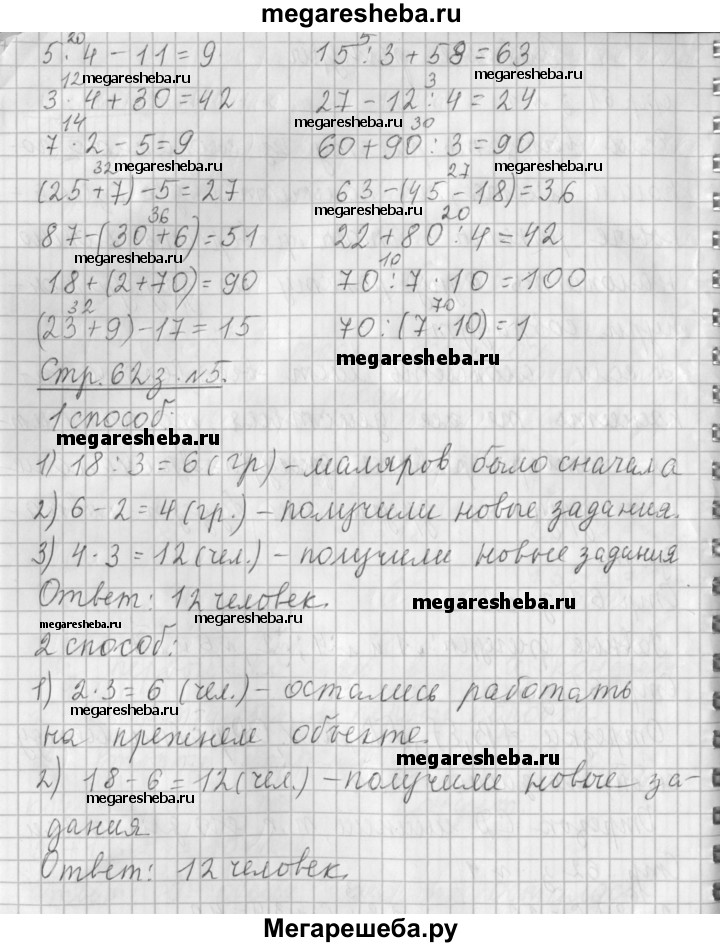 megaresheba.ru
20 5
5 · 4 - 11 = 9 15 : 3 + 58 = 63
12 megaresheba.ru megaresheba.ru 3
3 · 4 + 30 = 42 27 - 12 : 4 = 24
14 megaresheba.ru 30
7 · 2 - 5 = 9 60 + 90 : 3 = 90
32 megaresheba.ru 27
(25 + 7) - 5 = 27 63 - (45 - 18) = 36
36 megaresheba.ru 20
87 - (30 + 6) = 51 22 + 80 : 4 = 42
megaresheba.ru 10
18 + (2 + 70) = 90 70 : 7 · 10 = 100
32 megaresheba.ru 70
(23 + 9) - 17 = 15 70 : (7 · 10) = 1
megaresheba.ru
Стр. 62 з. №5.
1 способ:
megaresheba.ru
1) 18 : 3 = 6 (гр) - маляров было сначала
2) 6 - 2 = 4 (гр.) - получили новые задания.
3) 4 · 3 = 12 (чел.) - получили новые задания
Ответ: 12 человек.
megaresheba.ru megaresheba.ru megaresheba.ru
2 способ:
1) 2 · 3 = 6 (чел.) - остались работать
megaresheba.ru
на прежнем объекте.
megaresheba.ru
2) 18 - 6 = 12 (чел.) - получили новые за-
megaresheba.ru
дания
Ответ: 12 человек.
megaresheba.ru
Мегарешеба.ру